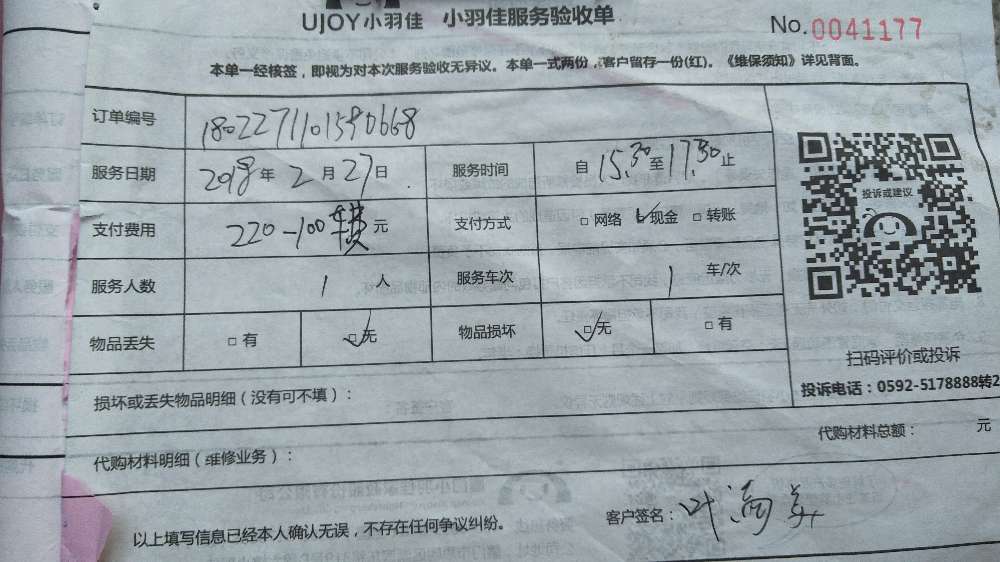 UJOY小羽佳 小羽佳服务验收单
No.0041177
本单一经核签，即视为对本次服务验收无异议。本单一式两份，客户留存一份(红)。《维保须知》详见背面。
订单编号 1802271101590668
服务日期 2018年2月27日 服务时间 自15:30至17:30止
支付费用 220-100 元 支付方式 □网络 ☑现金 □转账
服务人数 1 人 服务车次 1 车/次
物品丢失 □有 ☑无 物品损坏 ☑无 □有
投诉或建议
扫码评价或投诉
投诉电话：0592-5178888转2
损坏或丢失物品明细（没有可不填）：
代购材料总额： 元
代购材料明细（维修业务）：
以上填写信息已经本人确认无误，不存在任何争议纠纷。
客户签名：叶